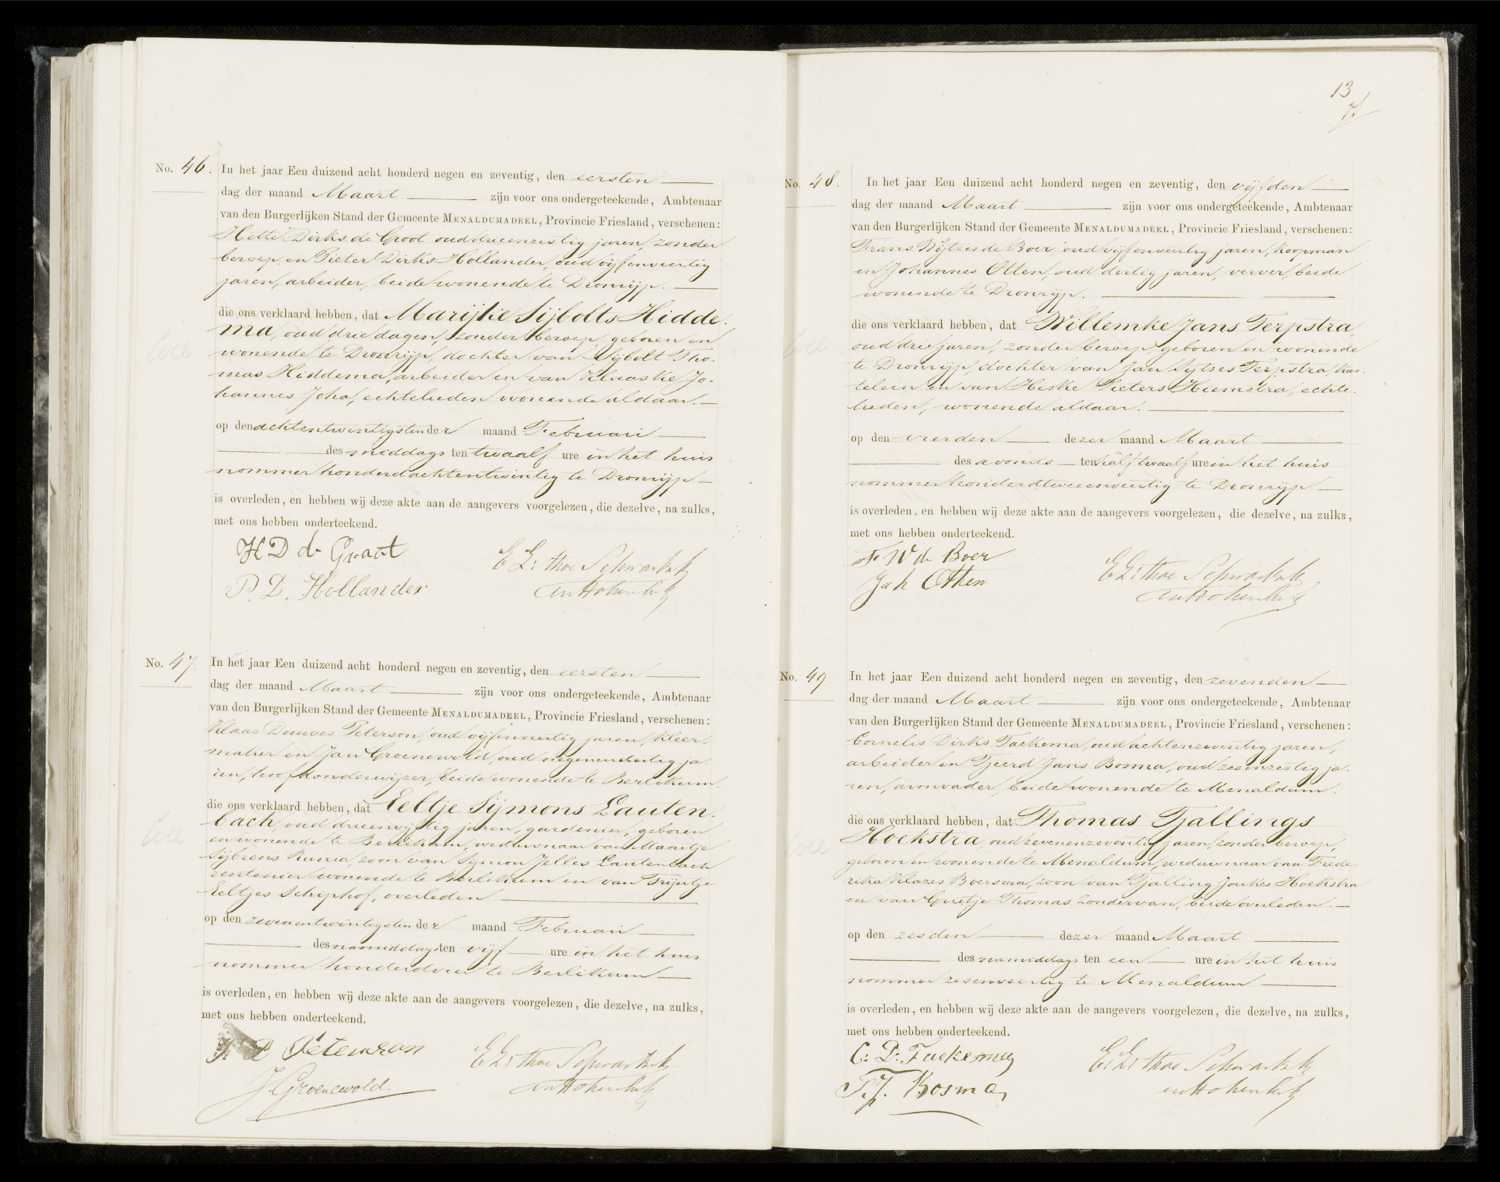 No. 46. In het jaar Een duizend acht honderd negen en zeventig, den eersten
dag der maand Maart zijn voor ons ondergeteekende, Ambtenaar
van den Burgerlijken Stand der Gemeente MENALDUMADEEL, Provincie Friesland, verschenen:
Dirks de Groot oud drieenzestig jaren, zonder
beroep en Pieter Dirks Hollander, oud vijfenveertig
jaren, arbeider, beide wonende te Dronrijp.
die ons verklaard hebben, dat Marijke Sijbolts Hidde-
ma, oud drie dagen, zonder beroep, geboren en
wonende te Dronrijp, dochter van Sijbolt Tho-
mas Hiddema, arbeider en van Klaaske Jo-
hannes Joha, echtelieden wonende aldaar.
op den achtentwintigsten der maand Februari
des middags ten twaalf ure in het huis
nommer honderdachtentwintig te Dronrijp
is overleden, en hebben wij deze akte aan de aangevers voorgelezen, die dezelve, na zulks,
met ons hebben onderteekend.
H D de Groot
P. D. Hollander
No. 47 In het jaar Een duizend acht honderd negen en zeventig, den eersten
dag der maand Maart zijn voor ons ondergeteekende, Ambtenaar
van den Burgerlijken Stand der Gemeente MENALDUMADEEL, Provincie Friesland, verschenen:
Klaas Douwes Peterson, oud vijfenveertig jaren, kleer-
maker en Jan Groenewold, oud negenendertig ja-
ren, hoofdonderwijzer, beide wonende te Berlikum.
die ons verklaard hebben, dat Eeltje Sijmons Lauten-
bach, oud drieenvijftig jaren, gardenier, geboren
en wonende te Berlikum, weduwnaar van Maartje
Sijbrens Runia, zoon van Symon Jelles Lautenbach
rentenier wonende te Berlikum en van Trijntje
Eeltjes Schiphof, overleden
op den zevenentwintigsten der maand Februari
des namiddags ten vijf ure in het huis
nommer te Berlikum
is overleden, en hebben wij deze akte aan de aangevers voorgelezen, die dezelve, na zulks,
met ons hebben onderteekend.
K. D. Peterson
J Groenewold.
13
No. 48. In het jaar Een duizend acht honderd negen en zeventig, den vijfden
dag der maand Maart zijn voor ons ondergeteekende, Ambtenaar
van den Burgerlijken Stand der Gemeente MENALDUMADEEL, Provincie Friesland, verschenen:
Frans Wijtzes de Boer oud vijfenveertig jaren, koopman
en Johannes Otten, oud dertig jaren, verver, beide
wonende te Dronrijp.
die ons verklaard hebben, dat Willemke Jans Terpstra
oud drie jaren, zonder beroep, geboren en wonende
te Dronrijp, dochter van Jan Sytses Terpstra, kas-
telein en van Hiske Pieters Hiemstra, echte-
lieden, wonende aldaar.
op den vierden dezer maand Maart
des avonds ten half twaalf ure in het huis
nommer honderdtweeenveertig te Dronrijp
is overleden, en hebben wij deze akte aan de aangevers voorgelezen, die dezelve, na zulks,
met ons hebben onderteekend.
F. W de Boer
Joh Otten
No. 49 In het jaar Een duizend acht honderd negen en zeventig, den zevenden
dag der maand Maart zijn voor ons ondergeteekende, Ambtenaar
van den Burgerlijken Stand der Gemeente MENALDUMADEEL, Provincie Friesland, verschenen:
Cornelis Dirks Faekema, oud achtenzeventig jaren,
arbeider en Tjeerd Jans Bosma, oud zesenzestig ja-
ren, armvader, beide wonende te Menaldum.
die ons verklaard hebben, dat Thomas Tjallings
Hoekstra oud zevenenzeventig jaren, zonder beroep,
geboren en wonende te Menaldum, weduwnaar van Frede-
rika Klazes Boersma, zoon van Tjalling Jankes Hoekstra
en van Grietje Thomas Zondervan, beide overleden.
op den zesden dezer maand Maart
des namiddags ten een ure in het huis
nommer zesenveertig te Menaldum
is overleden, en hebben wij deze akte aan de aangevers voorgelezen, die dezelve, na zulks,
met ons hebben onderteekend.
C: D: Faekema
T. J. Bosma